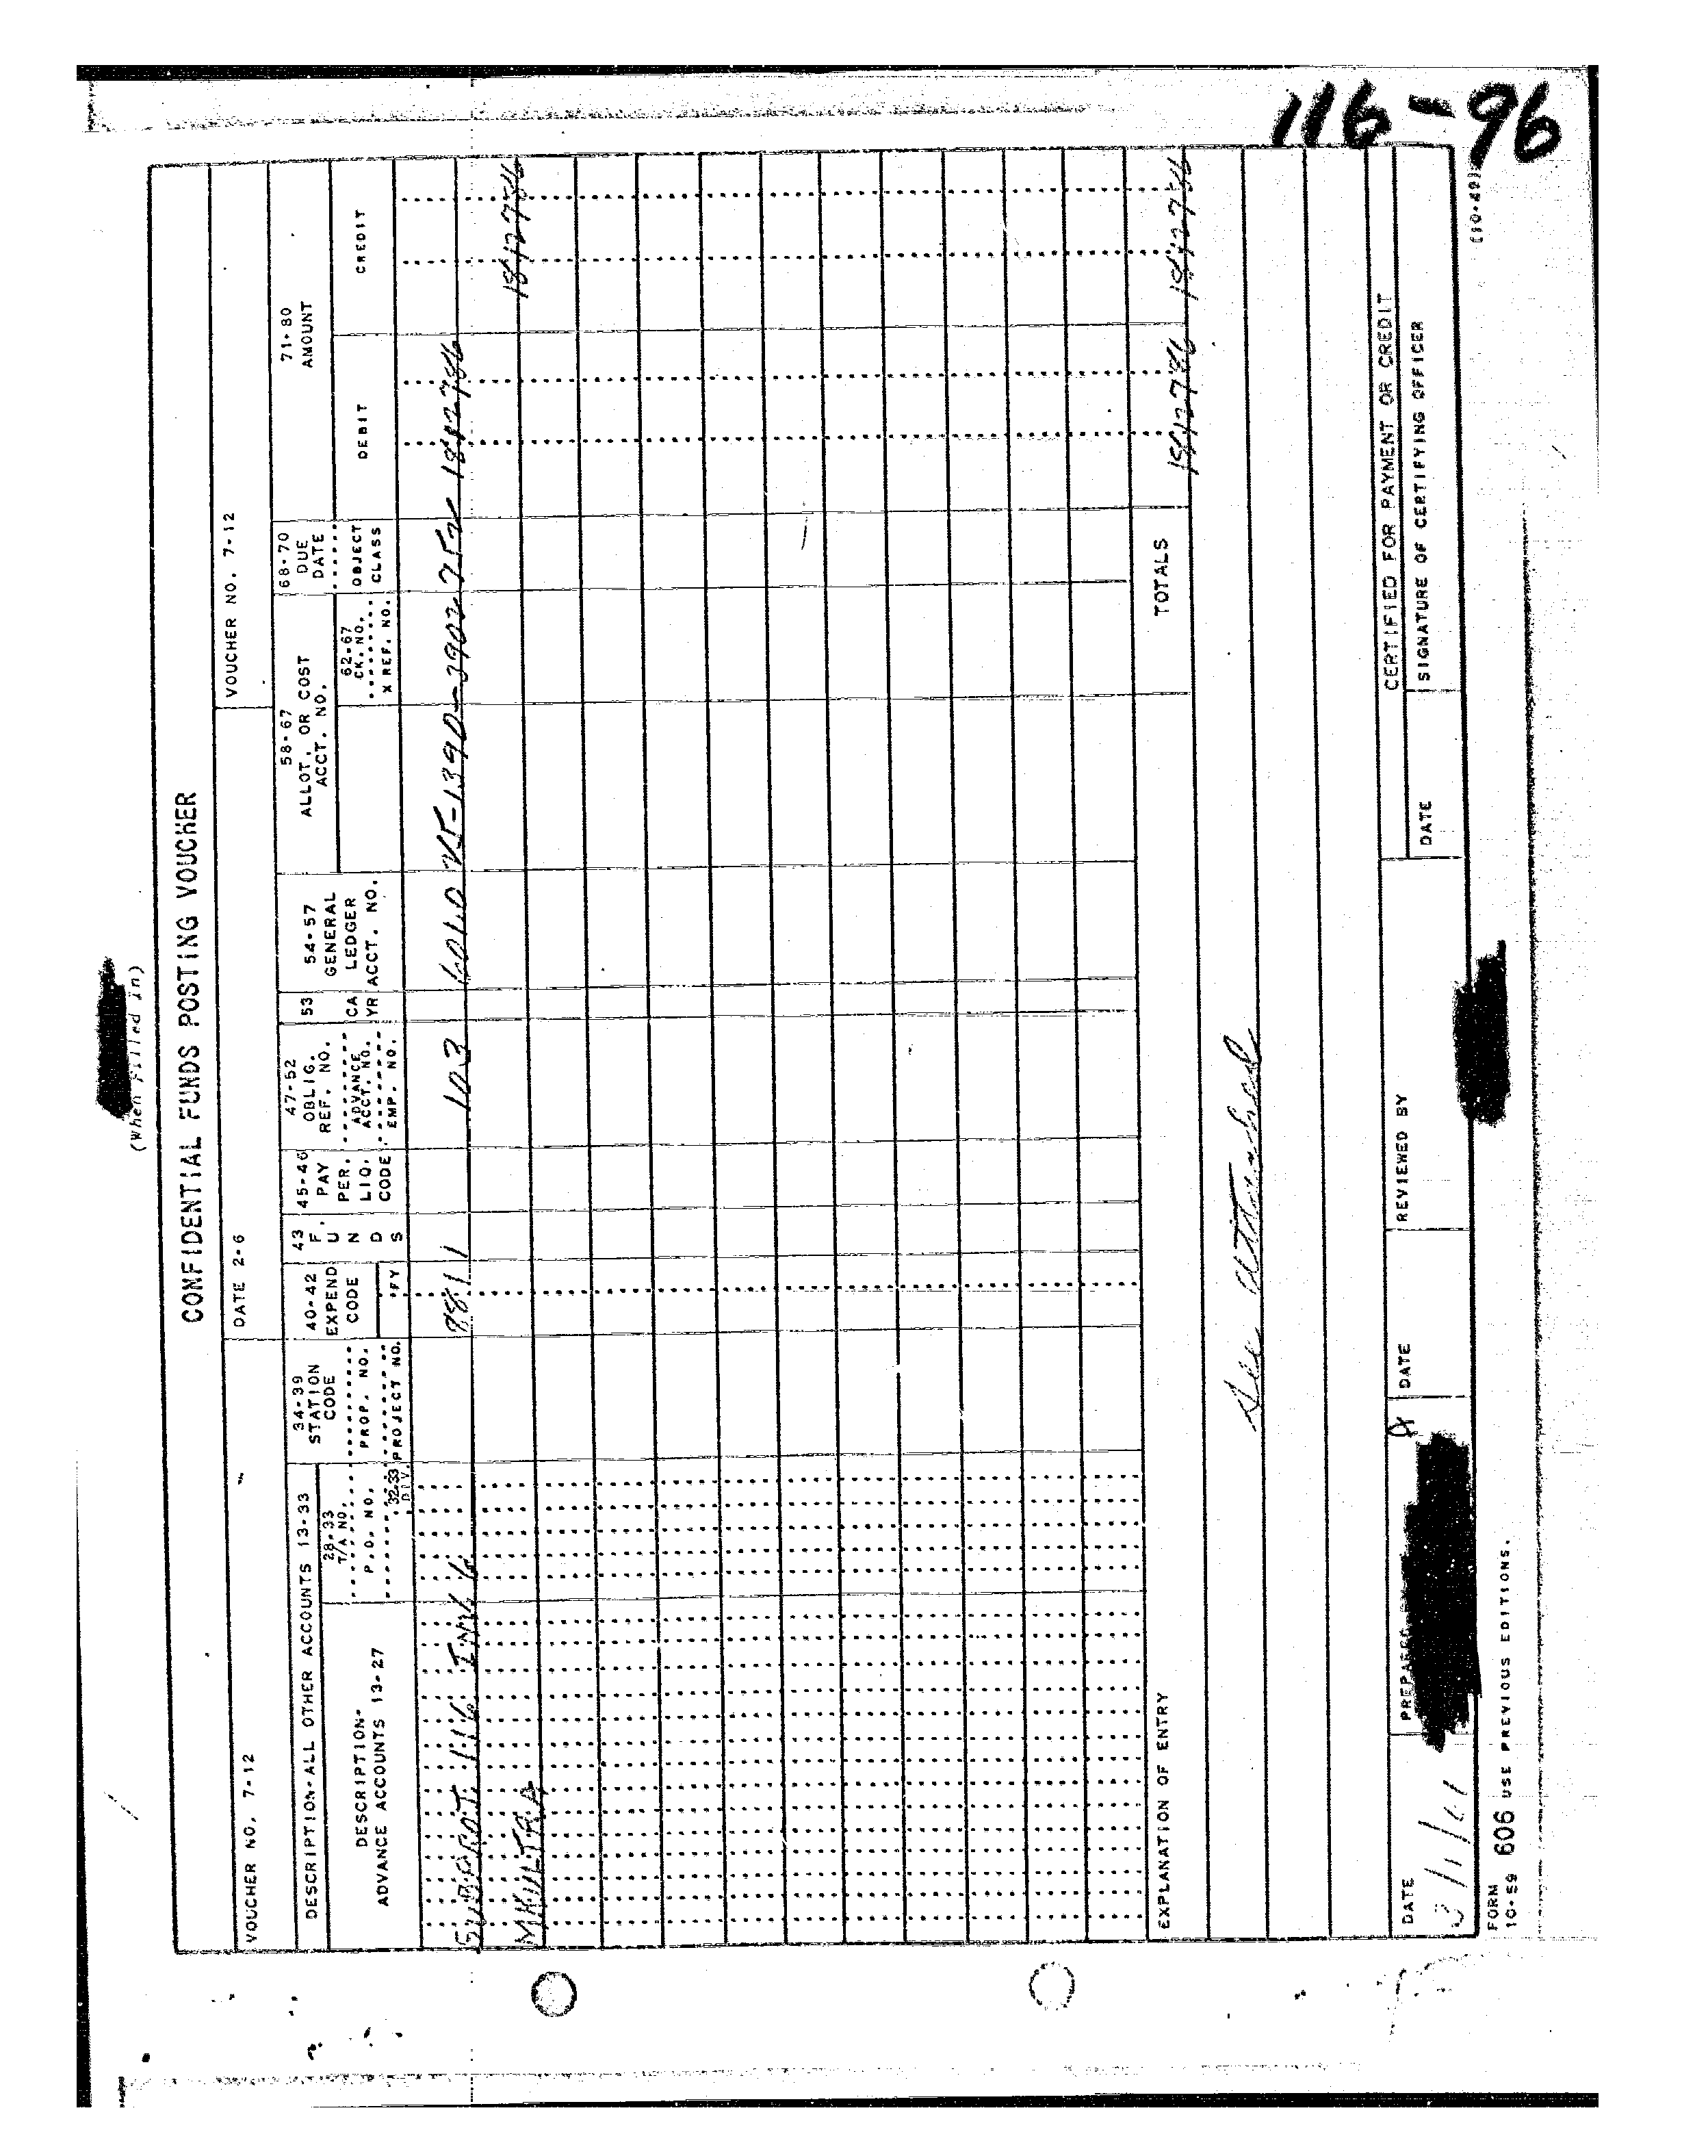 116-96
(When Filled In)
CONFIDENTIAL FUNDS POSTING VOUCHER
VOUCHER NO. 7-12
DATE 2-6
VOUCHER NO. 7-12
DESCRIPTION-ALL OTHER ACCOUNTS 13-33
DESCRIPTION-
ADVANCE ACCOUNTS 13-27
28-33
T/A NO.
P.O. NO.
32-33
DIV.
34-39
STATION
CODE
PROP. NO.
PROJECT NO.
40-42
EXPEND
CODE
FY
43
F.
U
N
D
S
45-46
PAY
PER.
LIQ.
CODE
47-52
OBLIG.
REF. NO.
ADVANCE
ACCT. NO.
EMP. NO.
53
CA
YR
54-57
GENERAL
LEDGER
ACCT. NO.
58-67
ALLOT. OR COST
ACCT. NO.
62-67
CK. NO.
X REF. NO.
68-70
DUE
DATE
OBJECT
CLASS
71-80
AMOUNT
DEBIT
CREDIT
SUBPROJ 116 INV 6 103
MKULTRA
TOTALS
EXPLANATION OF ENTRY
See attached
CERTIFIED FOR PAYMENT OR CREDIT
DATE
DATE
REVIEWED BY
DATE
SIGNATURE OF CERTIFYING OFFICER
FORM
10-59 606 USE PREVIOUS EDITIONS.